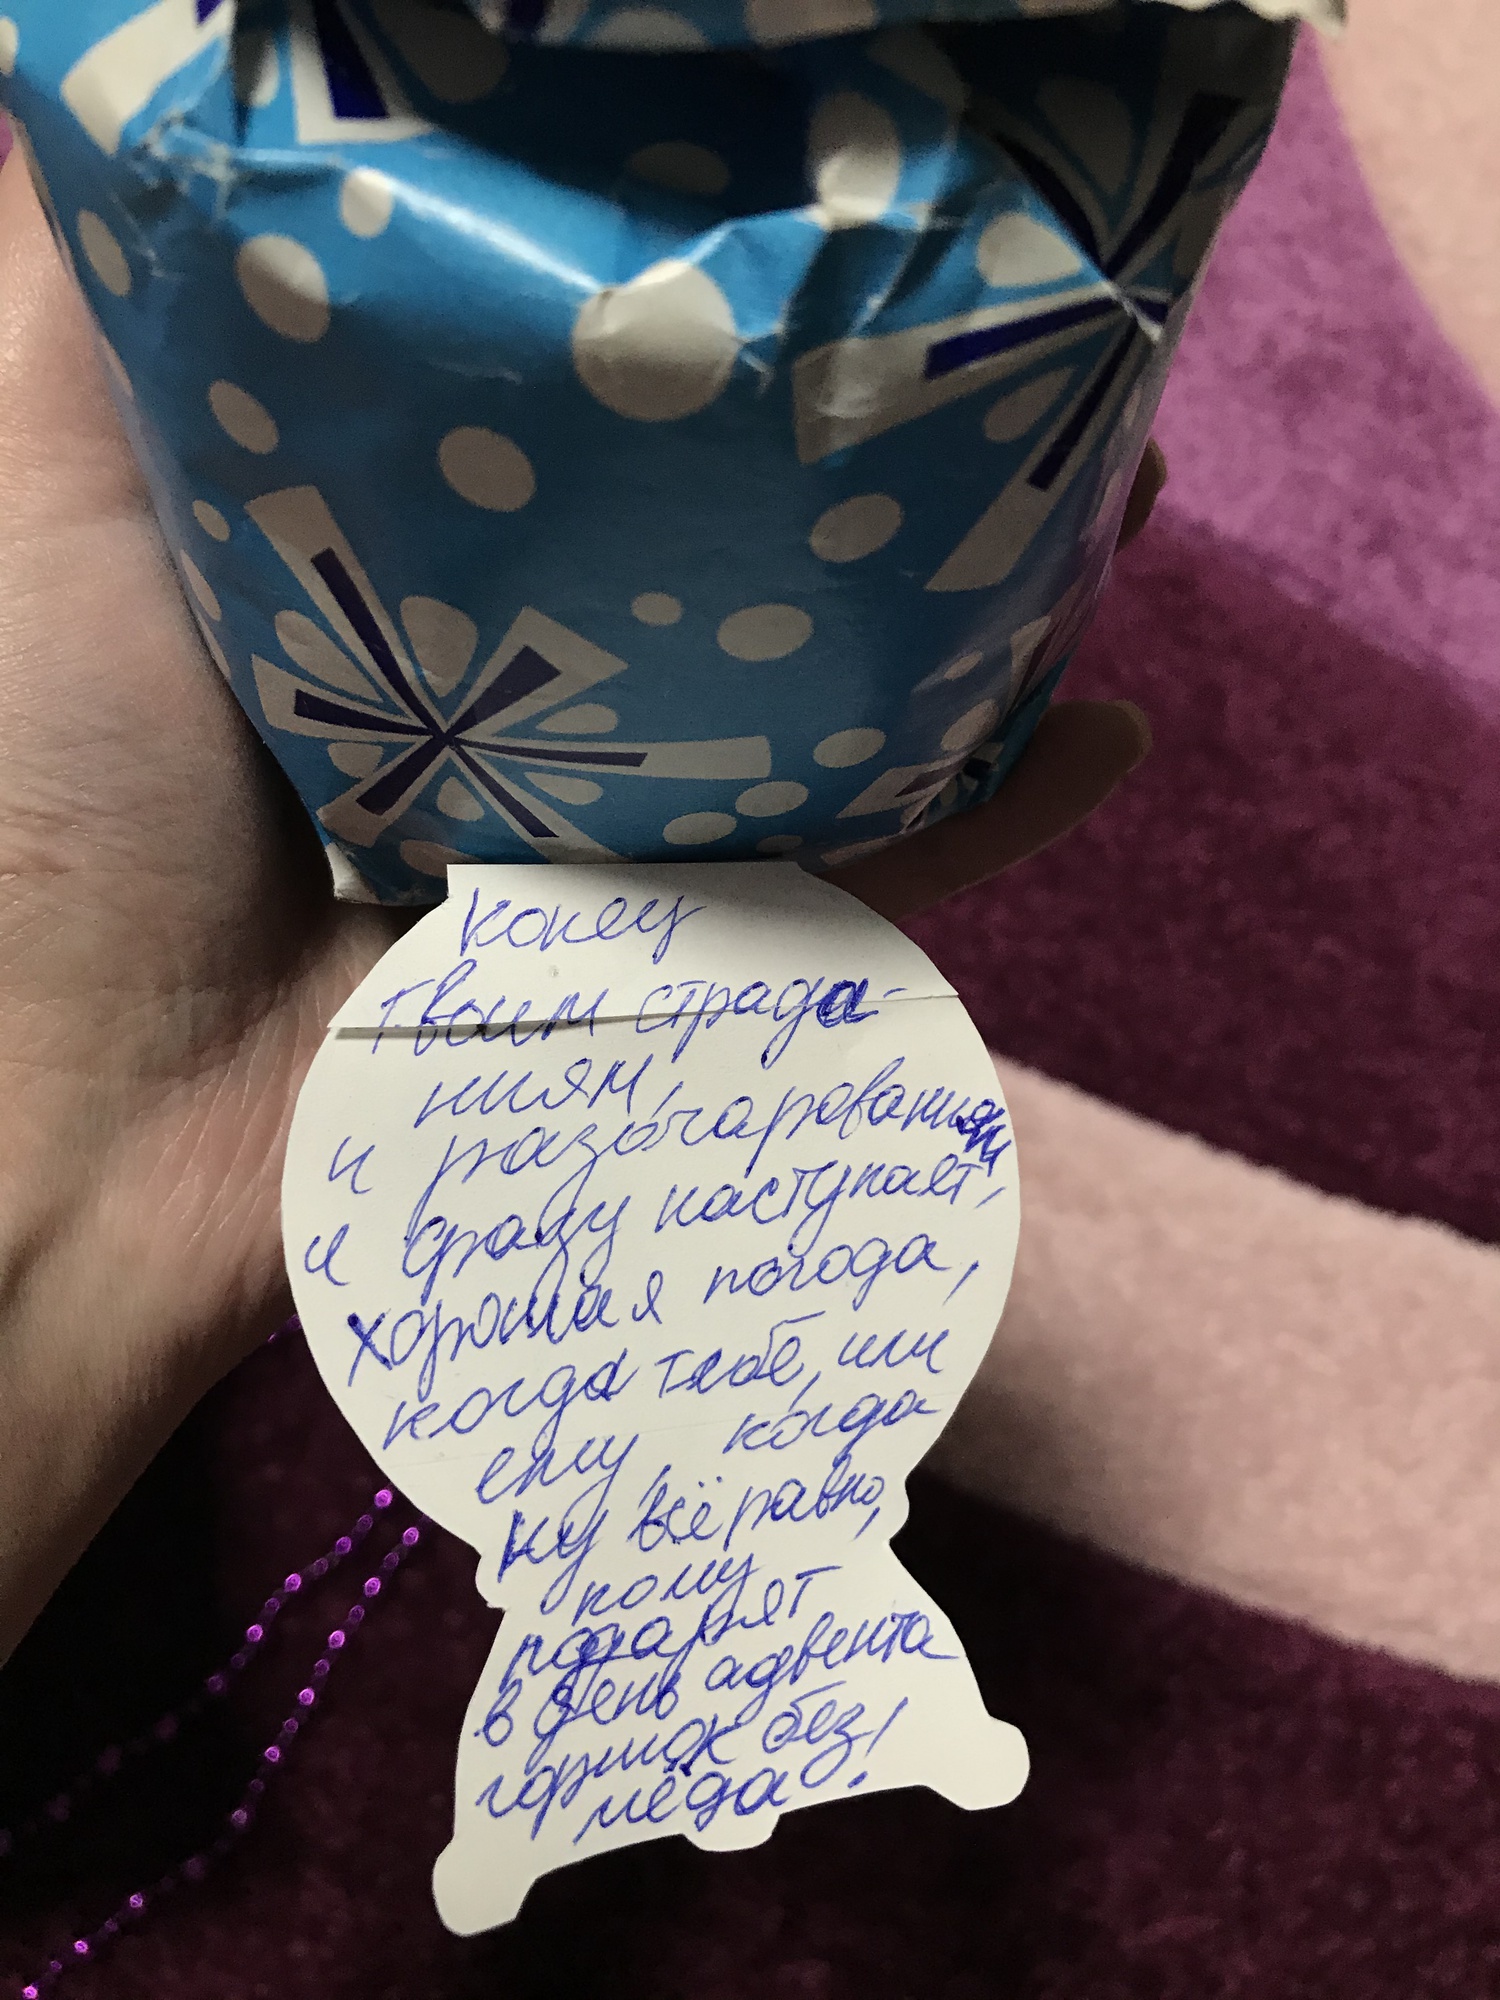 Конец
твоим страда-
ниям,
и разочарованиям
и сразу наступает,
хорошая погода,
когда тебе, или
ему, когда
ну всё равно,
кому
подарят
в день адвента
горшок без
мёда!